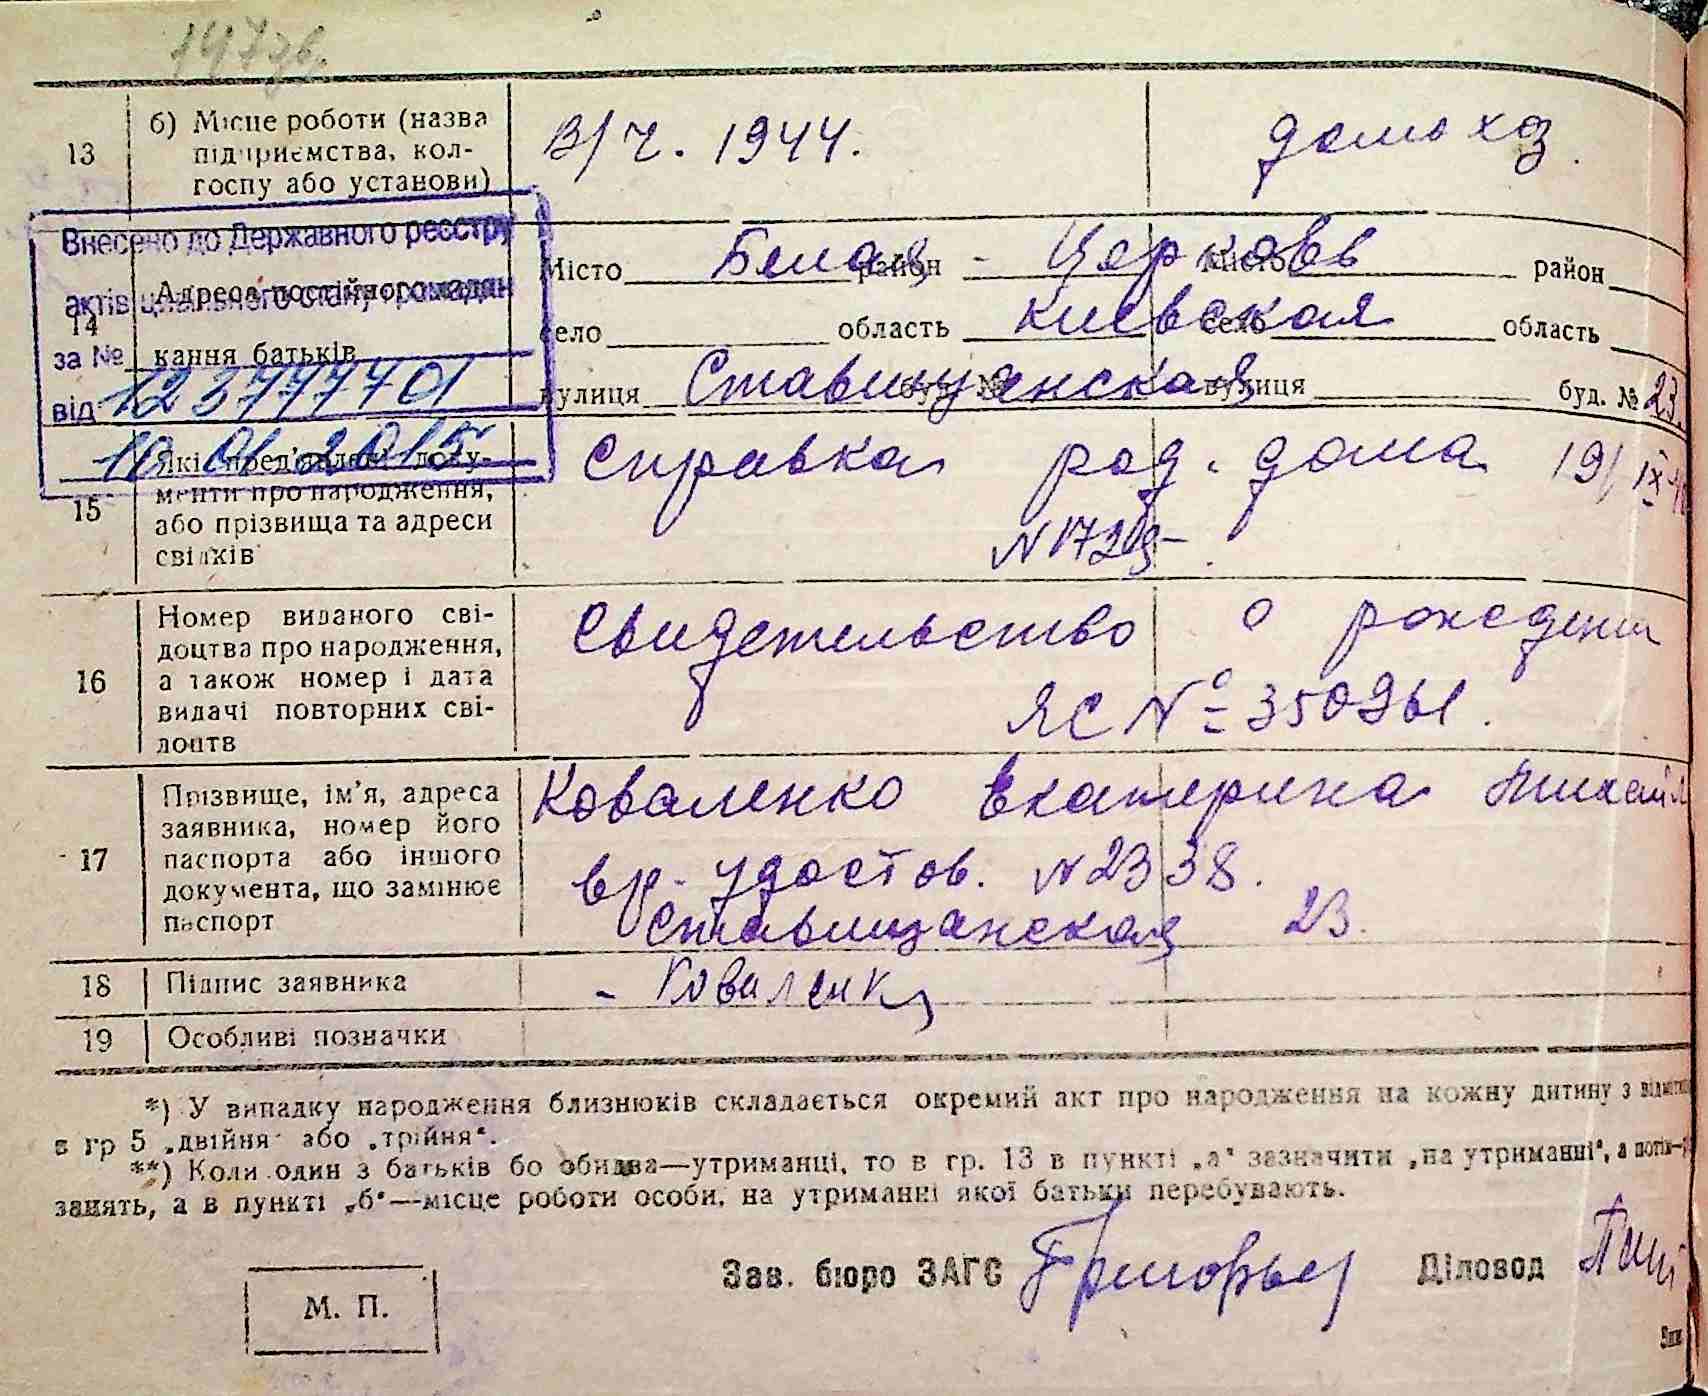 13
б) Місце роботи (назва
підприємства, кол-
госпу або установи)
В/ч. 1944.
домохоз.
Внесено до Державного реєстру
актів цивільного стану громадян
за №
12377701
від
10.01.2015
14
Адреса постійного
кання батьків
Місто Белая - Церковь район Місто район
село область Киевская село область
вулиця Ставищанская буд. № вулиця буд. № 23
15
Які пред'явлені доку-
менти про народження,
або прізвища та адреси
свідків
Справка род. дома 19/IX
16
Номер виданого сві-
доцтва про народження,
а також номер і дата
видачі повторних сві-
доцтв
Свидетельство о рождении
ЯС № 350961.
17
Прізвище, ім'я, адреса
заявника, номер його
паспорта або іншого
документа, що замінює
паспорт
Коваленко Екатерина Михайл
вр. удостов. N 2338.
Ставищанская 23.
18
Підпис заявника
- Коваленко
19
Особливі позначки
*) У випадку народження близнюків складається окремий акт про народження на кожну дитину з відмітк
в гр 5 „двійня“ або „трійня“.
**) Коли один з батьків бо обидва—утриманці, то в гр. 13 в пункті „а“ зазначити „на утриманні“, а потім
занять, а в пункті „б“—місце роботи особи, на утриманні якої батьки перебувають.
Зав. бюро ЗАГС Григорьев Діловод
М. П.